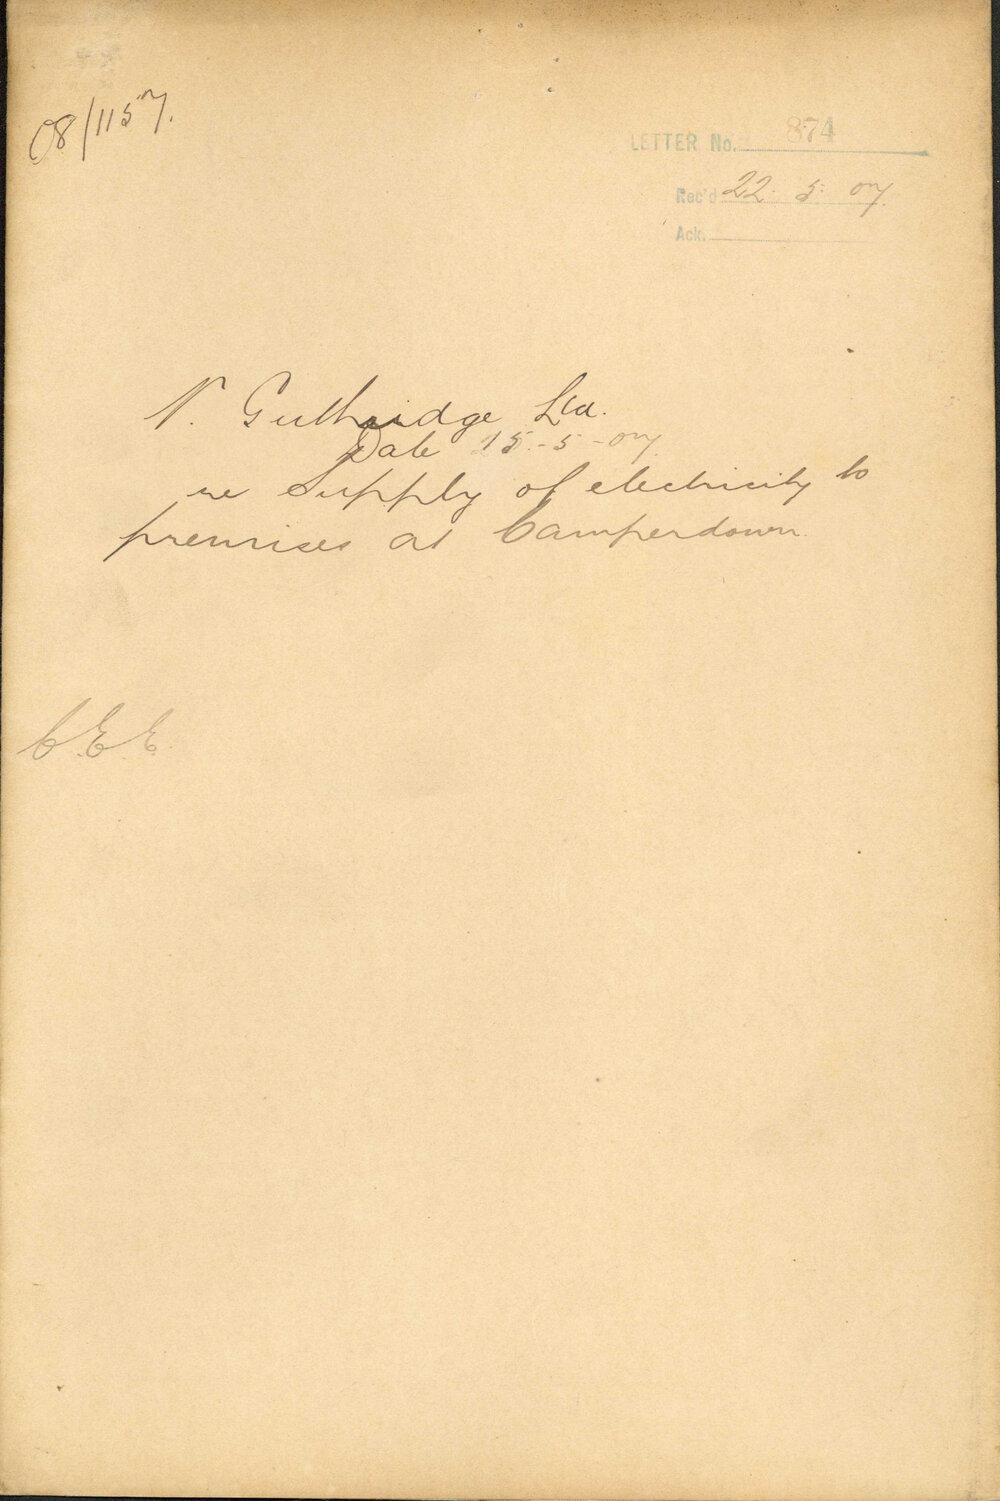 08/1157.
LETTER No. 874
Rec'd 22. 5. 07
Ack.
N. Guthridge Ltd.
Date 15-5-07
re Supply of electricity to
premises at Camperdown
C.E.E.